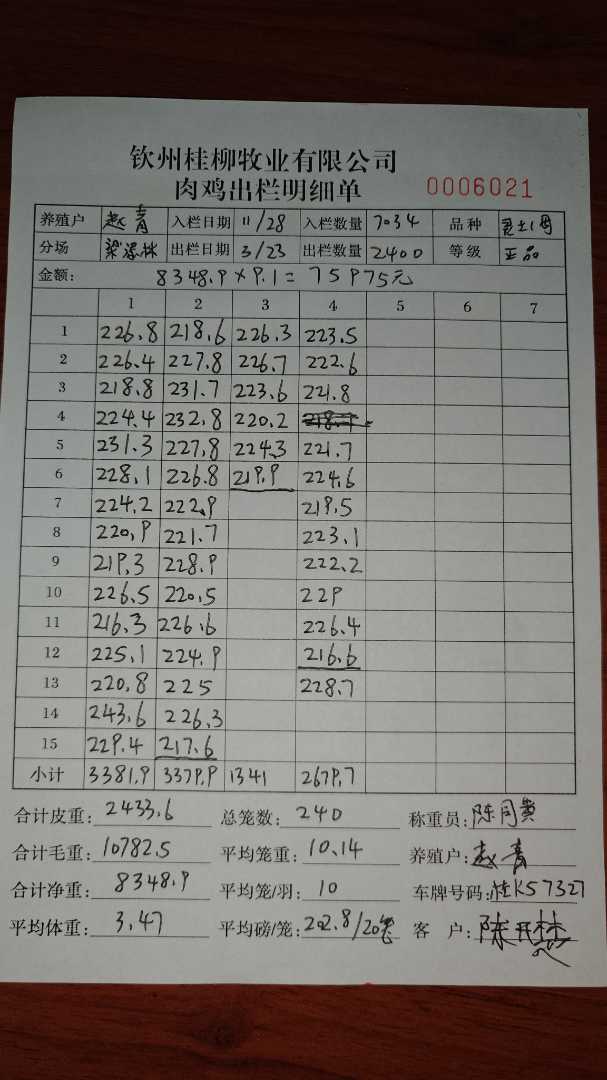 钦州桂柳牧业有限公司
肉鸡出栏明细单 0006021
养殖户 赵青 入栏日期 11/28 入栏数量 7034 品种
分场 出栏日期 3/23 出栏数量 2400 等级 正品
金额: 8348.9×9.1=75975元
1 2 3 4 5 6 7
1 226.8 218.6 226.3 223.5
2 226.4 227.8 226.7 222.6
3 218.8 231.7 223.6 221.8
4 224.4 232.8 220.2
5 231.3 227.8 224.3 221.7
6 228.1 226.8 219.9 224.6
7 224.2 222.9 219.5
8 220.9 221.7 223.1
9 219.3 228.9 222.2
10 226.5 220.5 229
11 216.3 226.6 226.4
12 225.1 224.9 216.6
13 220.8 225 228.7
14 243.6 226.3
15 229.4 217.6
小计 3381.9 3379.9 1341 2679.7
合计皮重: 2433.6 总笼数: 240 称重员:
合计毛重: 10782.5 平均笼重: 10.14 养殖户: 赵青
合计净重: 8348.9 平均笼/羽: 10 车牌号码: 桂K57327
平均体重: 3.47 平均磅/笼: 202.8/20笼 客户: